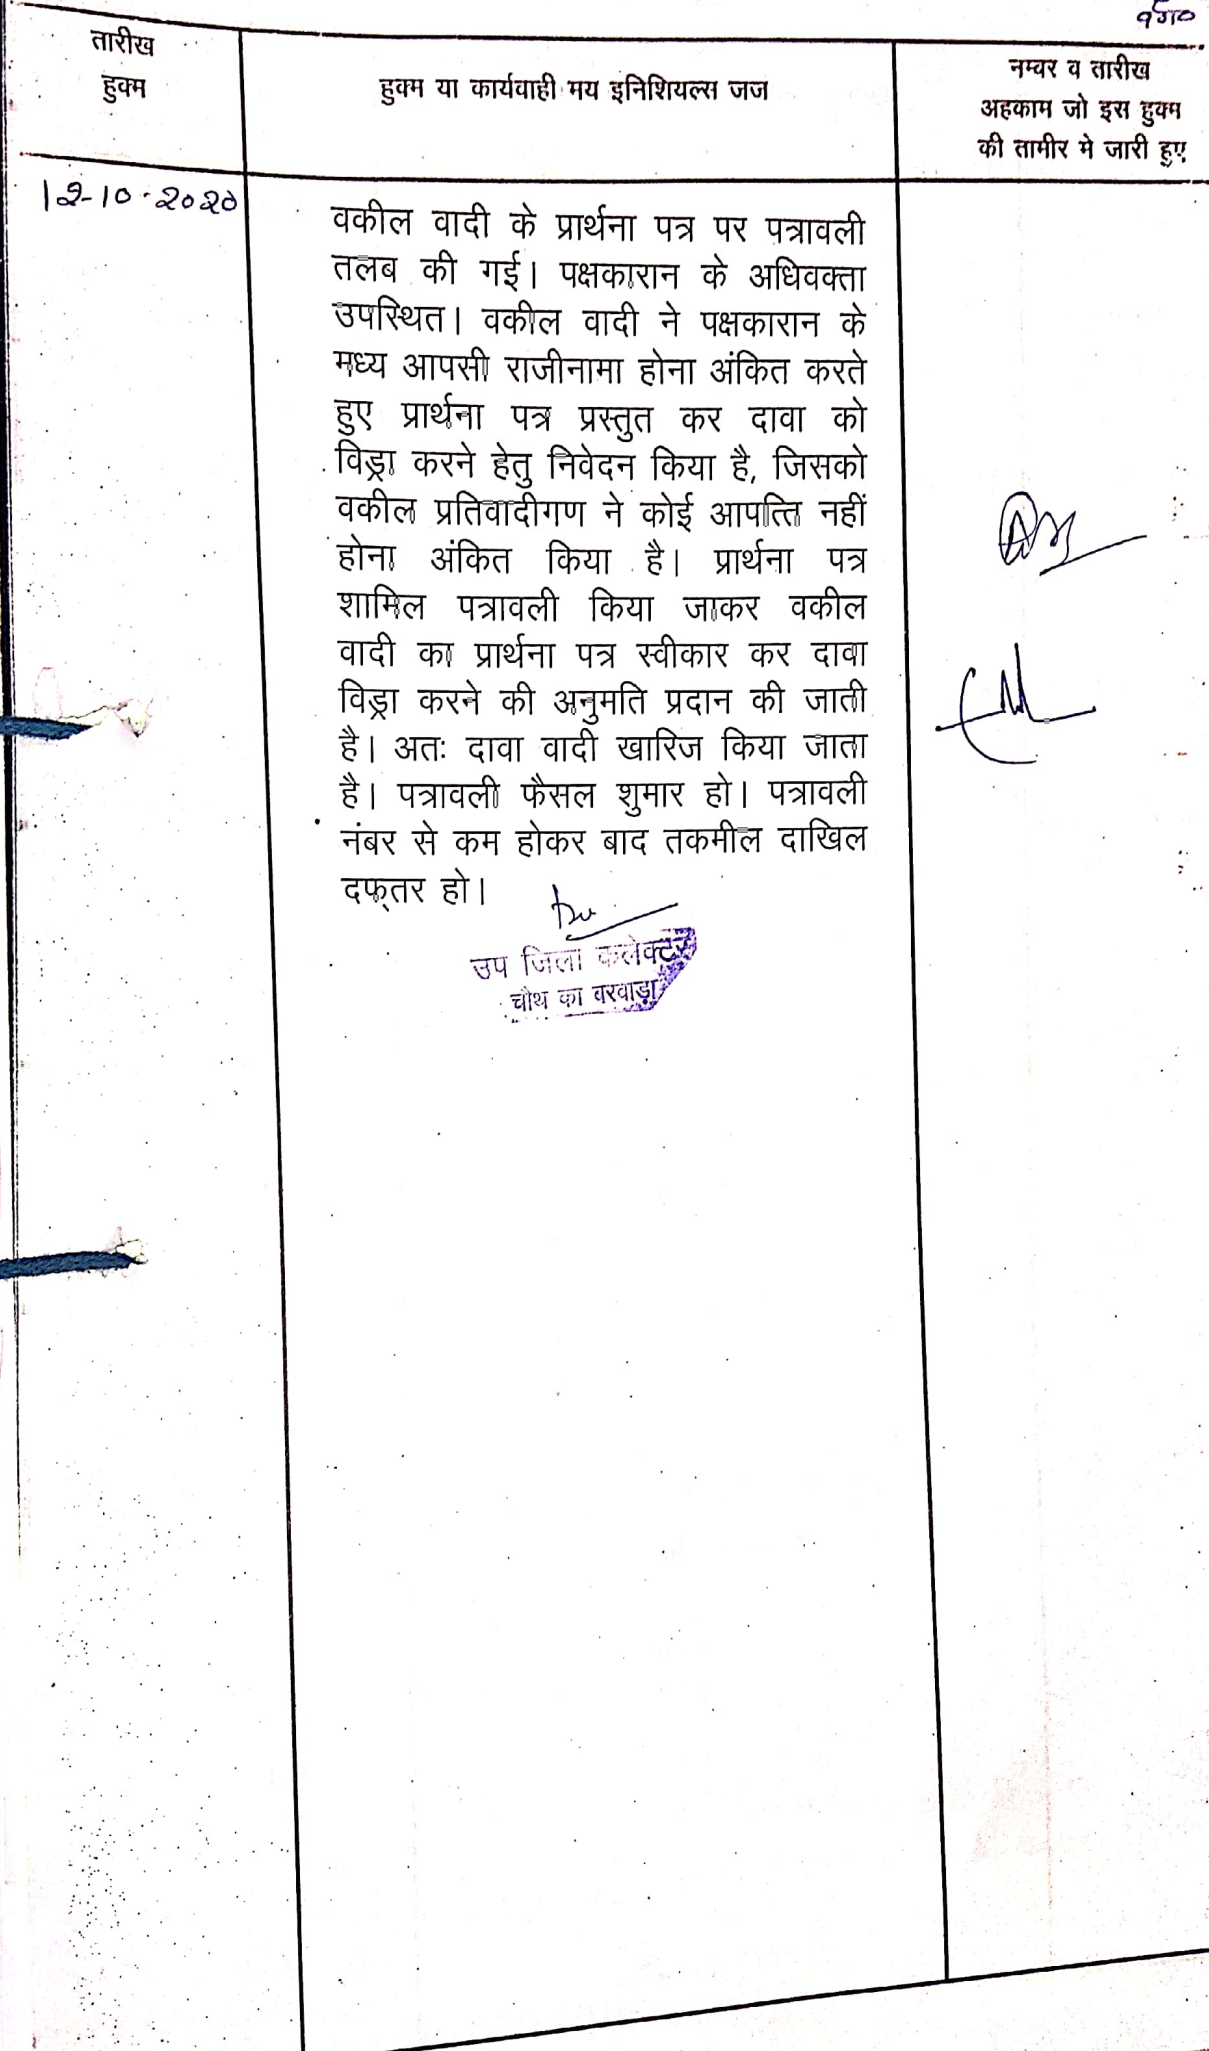 तारीख
हुक्म
हुक्म या कार्यवाही मय इनिशियल्स जज
नम्वर व तारीख
अहकाम जो इस हुक्म
की तामीर मे जारी हुए
12-10-2020
वकील वादी के प्रार्थना पत्र पर पत्रावली
तलब की गई। पक्षकारान के अधिवक्ता
उपस्थित। वकील वादी ने पक्षकारान के
मध्य आपसी राजीनामा होना अंकित करते
हुए प्रार्थना पत्र प्रस्तुत कर दावा को
विड्रा करने हेतु निवेदन किया है, जिसको
वकील प्रतिवादीगण ने कोई आपत्ति नहीं
होना अंकित किया है। प्रार्थना पत्र
शामिल पत्रावली किया जाकर वकील
वादी का प्रार्थना पत्र स्वीकार कर दावा
विड्रा करने की अनुमति प्रदान की जाती
है। अतः दावा वादी खारिज किया जाता
है। पत्रावली फैसल शुमार हो। पत्रावली
नंबर से कम होकर बाद तकमील दाखिल
दफ्तर हो।
उप जिला कलेक्टर
चौथ का बरवाड़ा